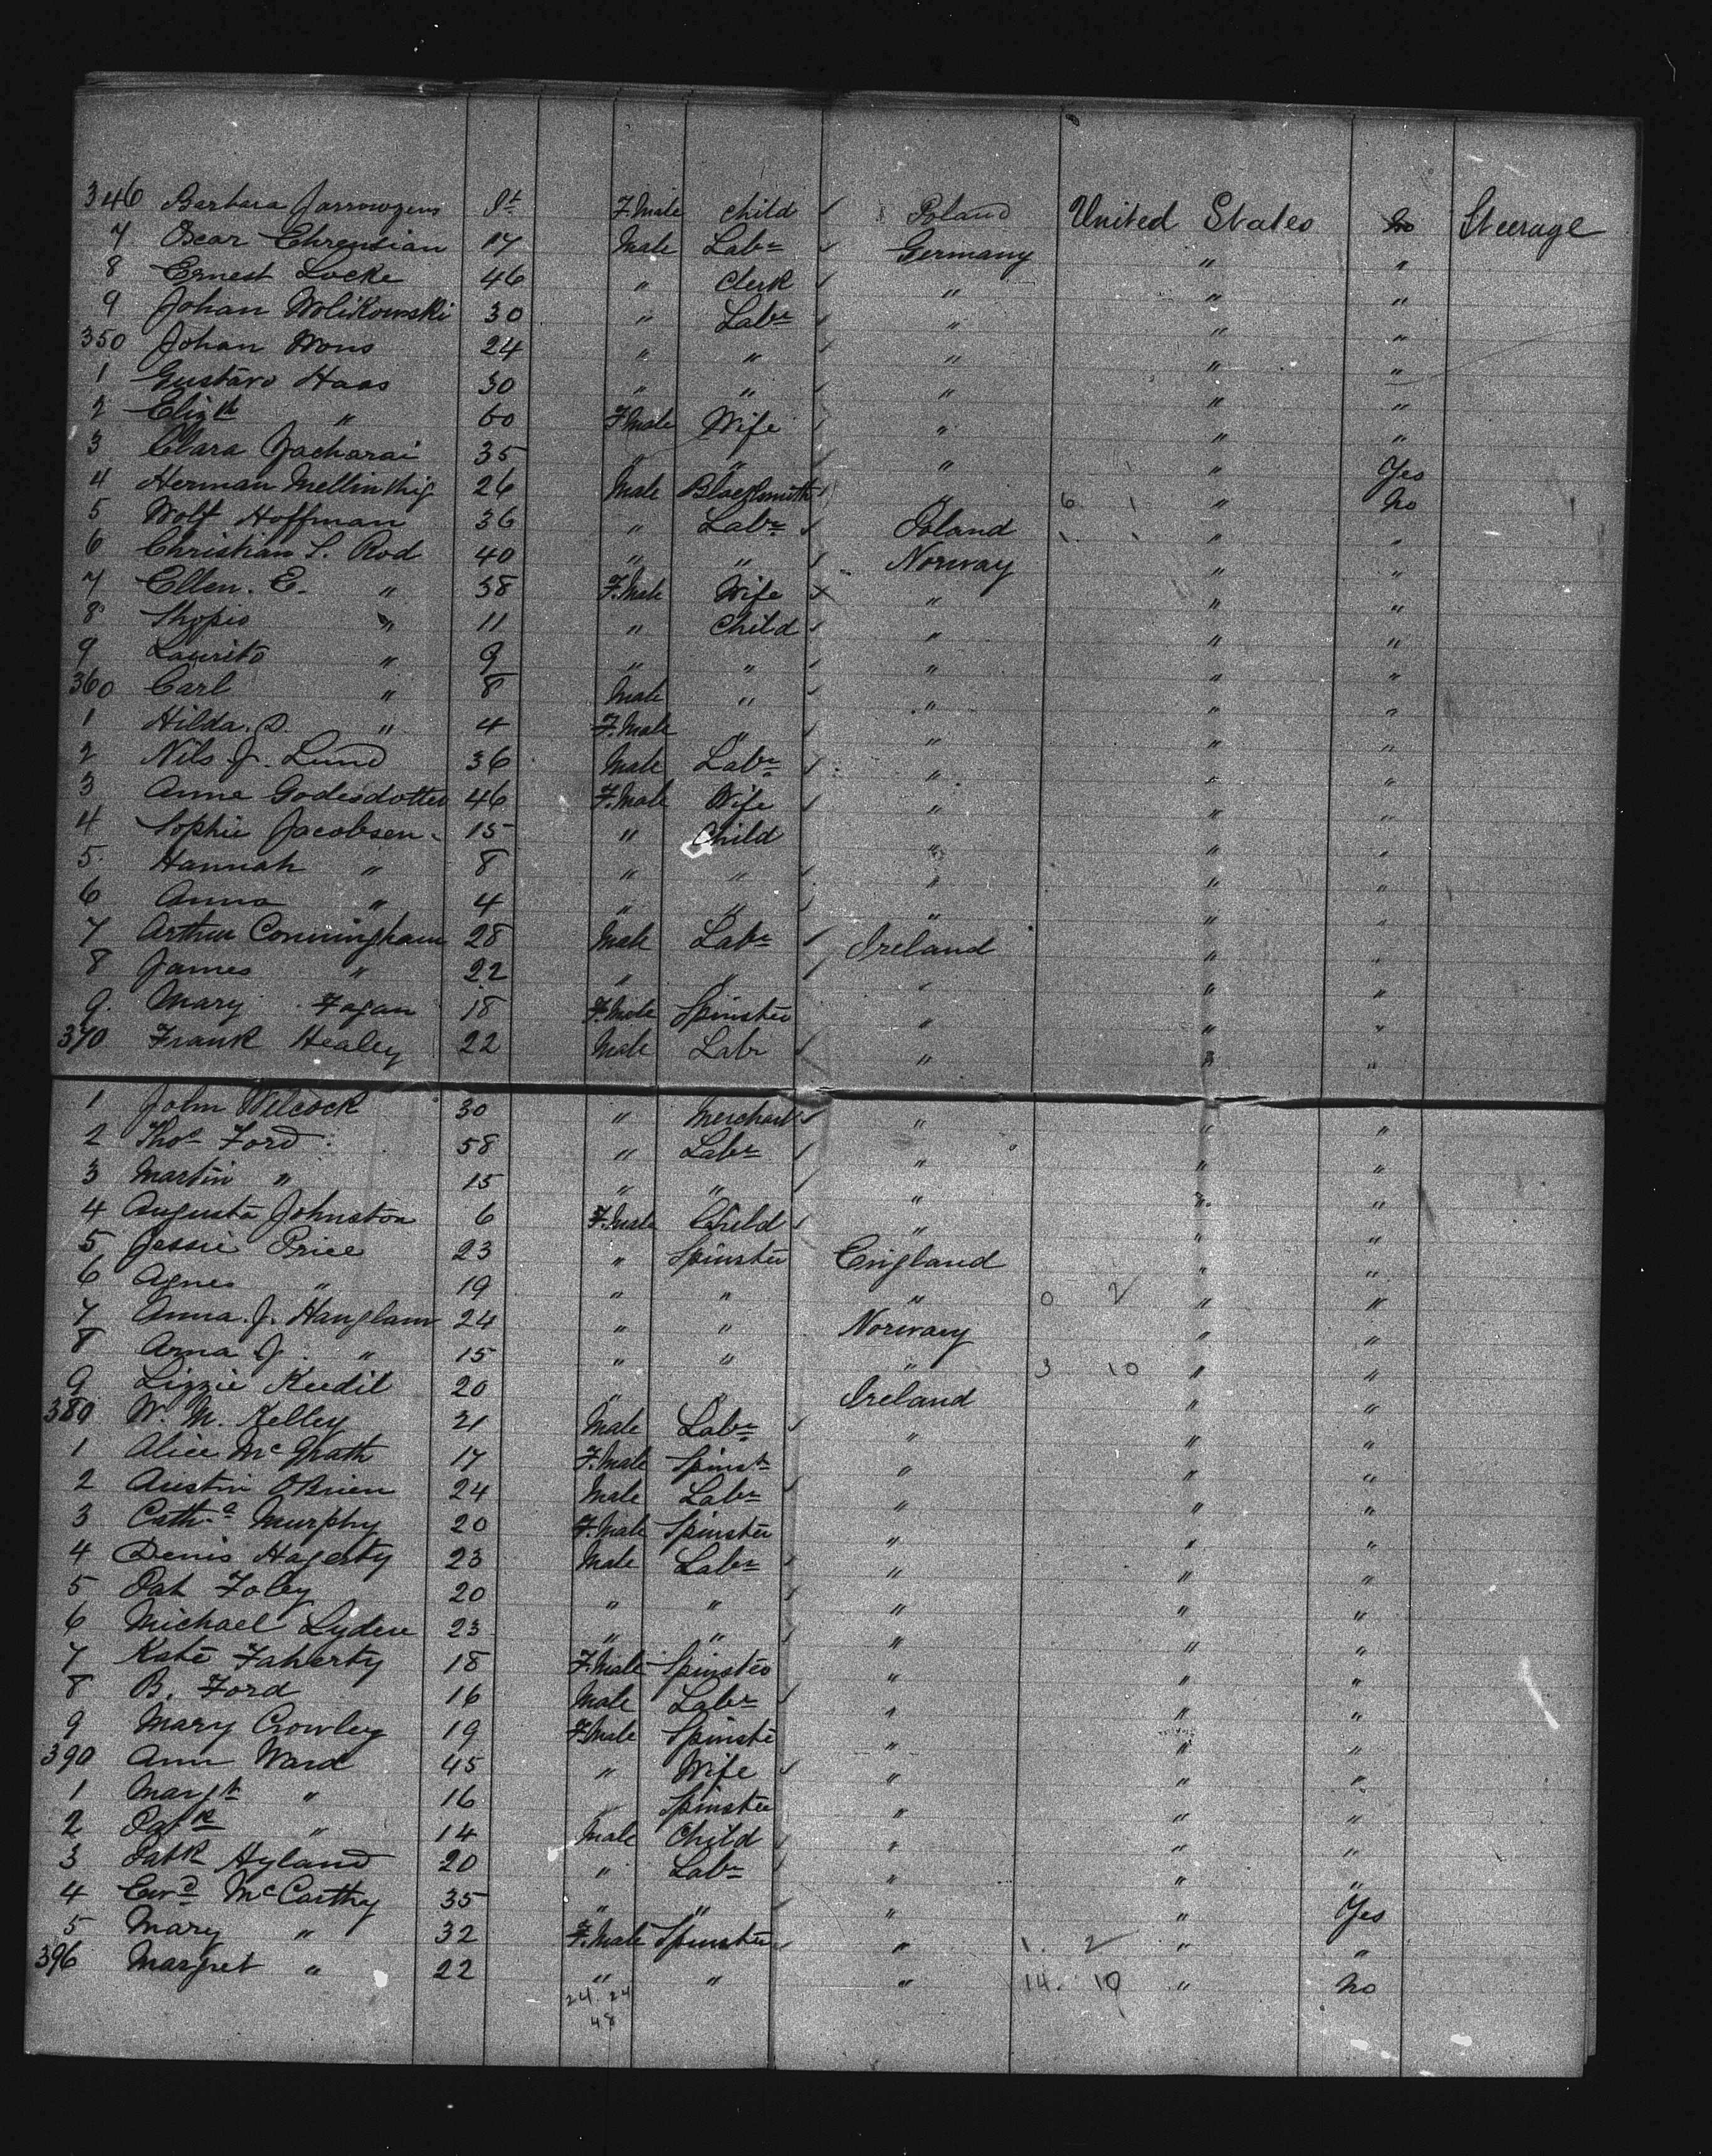 346 Barbara Jarrowzens F.Male Child Poland United States No Steerage
7 Oscar Ehrensian 17 Male Labr Germany " "
8 Ernest Locke 46 " Clerk " " "
9 Johan Wolikowski 30 " Labr " " "
350 Johan Wons 24 " " " " "
1 Gustavo Haas 50 " " " " "
2 Elizth " 60 F.Male Wife " " "
3 Clara Zacharai 35 " " " " Yes
4 Herman Mellinthig 26 Male Blacksmith " 6 1 " No
5 Wolf Hoffman 36 " Labr Poland 1 1 " "
6 Christian L. Rod 40 " " Norway " "
7 Ellen. E. " 38 F.Male Wife " " "
8 " 11 " Child " " "
9 Laurits " 9 " " " " "
360 Carl " 8 Male " " " "
1 Hilda. D. " 4 F.Male " " " "
2 Nils J. Lund 36 Male Labr " " "
3 Anne Godesdotter 46 F.Male Wife " " "
4 Sophie Jacobsen 15 " Child " " "
5 Hannah " 8 " " " " "
6 Anna " 4 " " " " "
7 Arthur Conningham 28 Male Labr Ireland " "
8 James " 22 " " " " "
9. Mary Fagan 18 F.Male Spinster " " "
370 Frank Healey 22 Male Labr " " "
1 John Wilcock 30 " Merchant " " "
2 Thos Ford 58 " Labr " " "
3 Martin " 15 " " " " "
4 Augusta Johnston 6 F.Male Child " " "
5 Jessie Price 23 " Spinster England " "
6 Agnes " 19 " " " 0 2 " "
7 Anna. J. Hanglam 24 " " Norway " "
8 Arna J. " 15 " " " 3 10 " "
9 Lizzie Keedil 20 " " Ireland " "
380 W. M. Kelley 21 Male Labr " " "
1 Alice McGrath 17 F.Male Spinstr " " "
2 Austin OBrien 24 Male Labr " " "
3 Catha Murphy 20 F.Male Spinster " " "
4 Denis Hagerty 23 Male Labr " " "
5 Pat Foley 20 " " " " "
6 Michael Lyden 23 " " " " "
7 Kate Faherty 18 F.Male Spinster " " "
8 B. Ford 16 Male Labr " " "
9 Mary Crowley 19 F.Male Spinste " " "
390 Ann Ward 45 " Wife " " "
1 Margt " 16 " Spinster " " "
2 Patk " 14 Male Child " " "
3 Patk Hyland 20 " Labr " " "
4 Edwd McCarthy 35 " " " " Yes
5 Mary " 32 F.Male Spinster " 1. 2 " "
396 Margret " 22 " " " 14. 10 " No
24. 24
48